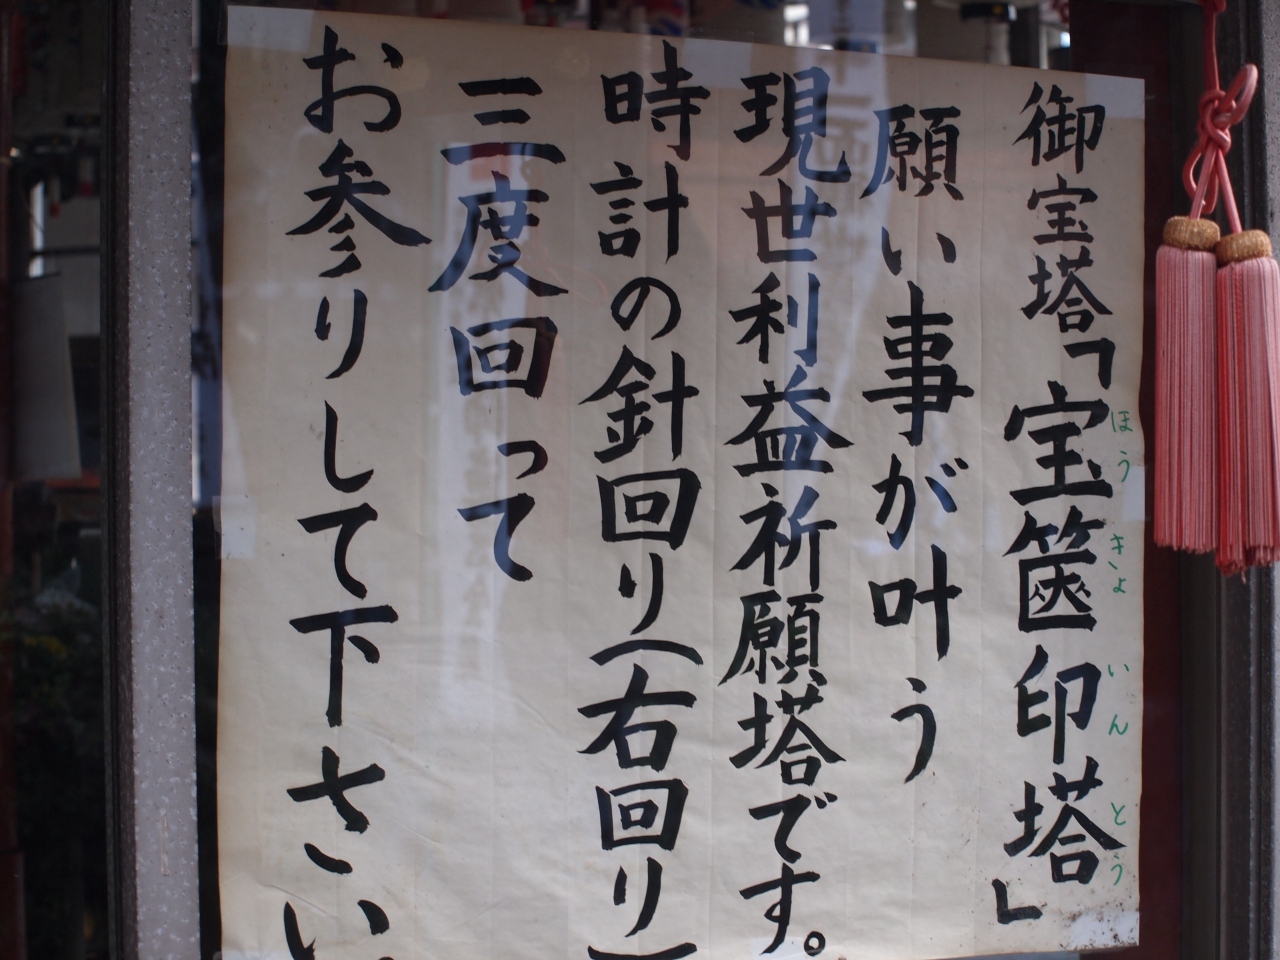 御宝塔「宝篋印塔」
ほうきょいんとう
願い事が叶う
現世利益祈願塔です。
時計の針回り(右回り)
三度回って
お参りして下さい